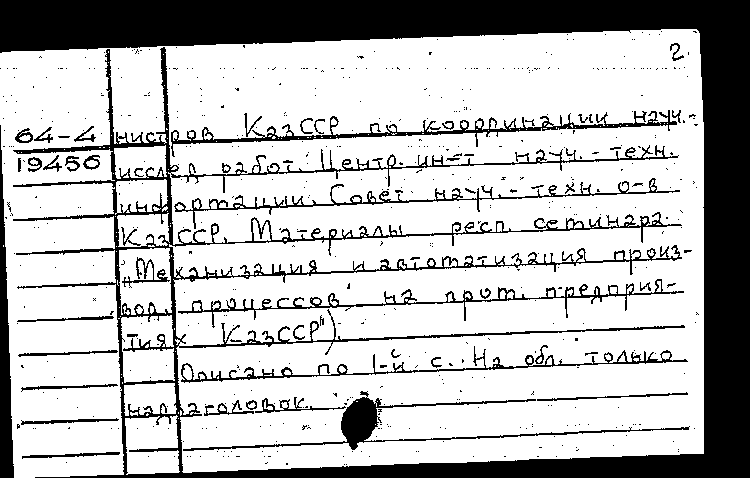 2.
64-4 нистров КазССР по координации науч.-
19456 исслед работ. Центр. ин-т науч.-техн.
информации. Совет науч.-техн. о-в
КазССР. Материалы респ. семинара
„Механизация и автоматизация произ-
вод. процессов на пром. предприя-
тиях КазССР").
Описано по 1-й с. На обл. только
надзаголовок.